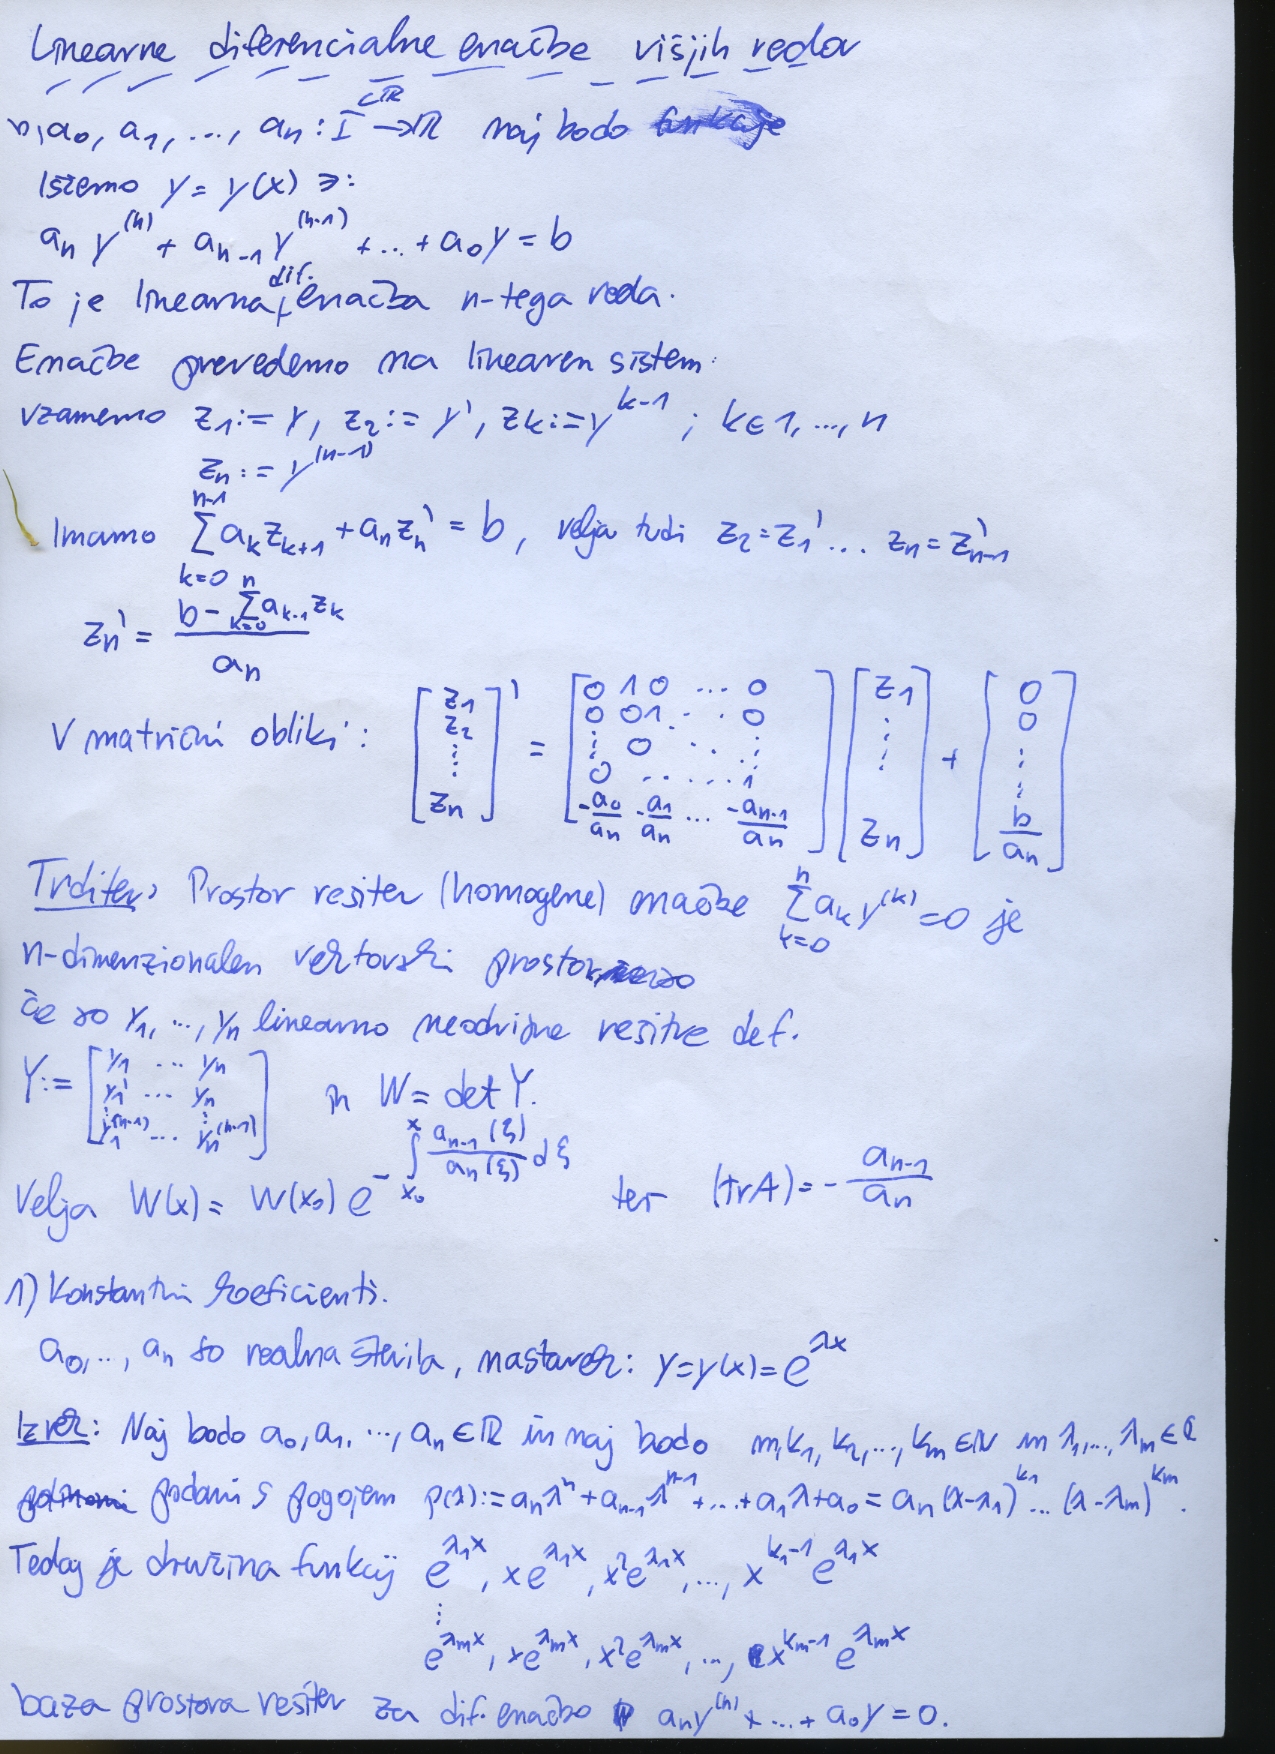 Linearne diferencialne enačbe višjih redov
b, a₀, a₁, ..., aₙ : I ⊂ℝ → ℝ naj bodo funkcije
Iščemo y = y(x) ∍:
aₙ y⁽ⁿ⁾ + aₙ₋₁ y⁽ⁿ⁻¹⁾ + ... + a₀y = b
To je linearna dif. enačba n-tega reda.
Enačbe prevedemo na linearen sistem.
vzamemo z₁ := y, z₂ := y', zₖ := y^{k-1} ; k ∈ 1, ..., n
zₙ := y⁽ⁿ⁻¹⁾
Imamo \sum_{k=0}^{n-1} aₖ z_{k+1} + aₙ zₙ' = b, velja tudi z₂ = z₁' ... zₙ = z'ₙ₋₁
zₙ' = \frac{b - \sum_{k=0}^{n} a_{k-1} z_k}{aₙ}
V matrični obliki: \begin{bmatrix} z₁ \\ z₂ \\ ⋮ \\ ⋮ \\ zₙ \end{bmatrix}' = \begin{bmatrix} 0 & 1 & 0 & ... & 0 \\ 0 & 0 & 1 & ... & 0 \\ ⋮ & 0 & & ... & ⋮ \\ 0 & ... & & ... & 1 \\ -\frac{a₀}{aₙ} & -\frac{a₁}{aₙ} & ... & & -\frac{aₙ₋₁}{aₙ} \end{bmatrix} \begin{bmatrix} z₁ \\ ⋮ \\ ⋮ \\ zₙ \end{bmatrix} + \begin{bmatrix} 0 \\ 0 \\ ⋮ \\ ⋮ \\ \frac{b}{aₙ} \end{bmatrix}
Trditev: Prostor rešitev (homogene) enačbe \sum_{k=0}^{n} aₖ y⁽ᵏ⁾ = 0 je
n-dimenzionalen vektorski prostor
če so y₁, ..., yₙ linearno neodvisne rešitve def.
Y := \begin{bmatrix} y₁ & ... & yₙ \\ y₁' & ... & yₙ \\ ⋮ & & ⋮ \\ y₁⁽ⁿ⁻¹⁾ & ... & yₙ⁽ⁿ⁻¹⁾ \end{bmatrix} in W = det Y.
Velja W(x) = W(x₀) e^{-\int_{x₀}^{x} \frac{aₙ₋₁(ξ)}{aₙ(ξ)} dξ} ter (trA) = -\frac{aₙ₋₁}{aₙ}
1) Konstantni koeficienti.
a₀, ..., aₙ so realna števila, nastavek: y = y(x) = e^{λx}
Izrek: Naj bodo a₀, a₁, ..., aₙ ∈ ℝ in naj bodo m, k₁, k₂, ..., kₘ ∈ ℕ in λ₁, ..., λₘ ∈ ℂ
podani s pogojem p(λ) := aₙλⁿ + aₙ₋₁λⁿ⁻¹ + ... + a₁λ + a₀ = aₙ(λ-λ₁)^{k₁} ... (λ-λₘ)^{kₘ}.
Tedaj je družina funkcij e^{λ₁x}, xe^{λ₁x}, x²e^{λ₁x}, ..., x^{k₁-1} e^{λ₁x}
⋮
e^{λₘx}, xe^{λₘx}, x²e^{λₘx}, ..., x^{kₘ-1} e^{λₘx}
baza prostora rešitev za dif. enačbo aₙy⁽ⁿ⁾ + ... + a₀y = 0.